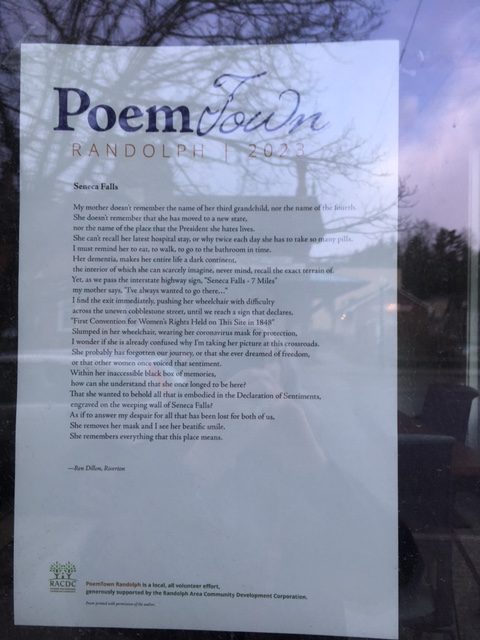 PoemTown
RANDOLPH | 2023
Seneca Falls
My mother doesn't remember the name of her third grandchild, nor the name of the fourth.
She doesn't remember that she has moved to a new state,
nor the name of the place that the President she hates lives.
She can't recall her latest hospital stay, or why twice each day she has to take so many pills.
I must remind her to eat, to walk, to go to the bathroom in time.
Her dementia, makes her entire life a dark continent,
the interior of which she can scarcely imagine, never mind, recall the exact terrain of.
Yet, as we pass the interstate highway sign, "Seneca Falls - 7 Miles"
my mother says, "I've always wanted to go there..."
I find the exit immediately, pushing her wheelchair with difficulty
across the uneven cobblestone street, until we reach a sign that declares,
"First Convention for Women's Rights Held on This Site in 1848"
Slumped in her wheelchair, wearing her coronavirus mask for protection,
I wonder if she is already confused why I'm taking her picture at this crossroads.
She probably has forgotten our journey, or that she ever dreamed of freedom,
or that other women once voiced that sentiment.
Within her inaccessible black box of memories,
how can she understand that she once longed to be here?
That she wanted to behold all that is embodied in the Declaration of Sentiments,
engraved on the weeping wall of Seneca Falls?
As if to answer my despair for all that has been lost for both of us,
She removes her mask and I see her beatific smile.
She remembers everything that this place means.
—Ran Dillon, Riverton
RACDC
PoemTown Randolph is a local, all volunteer effort,
generously supported by the Randolph Area Community Development Corporation.
Poem printed with permission of the author.